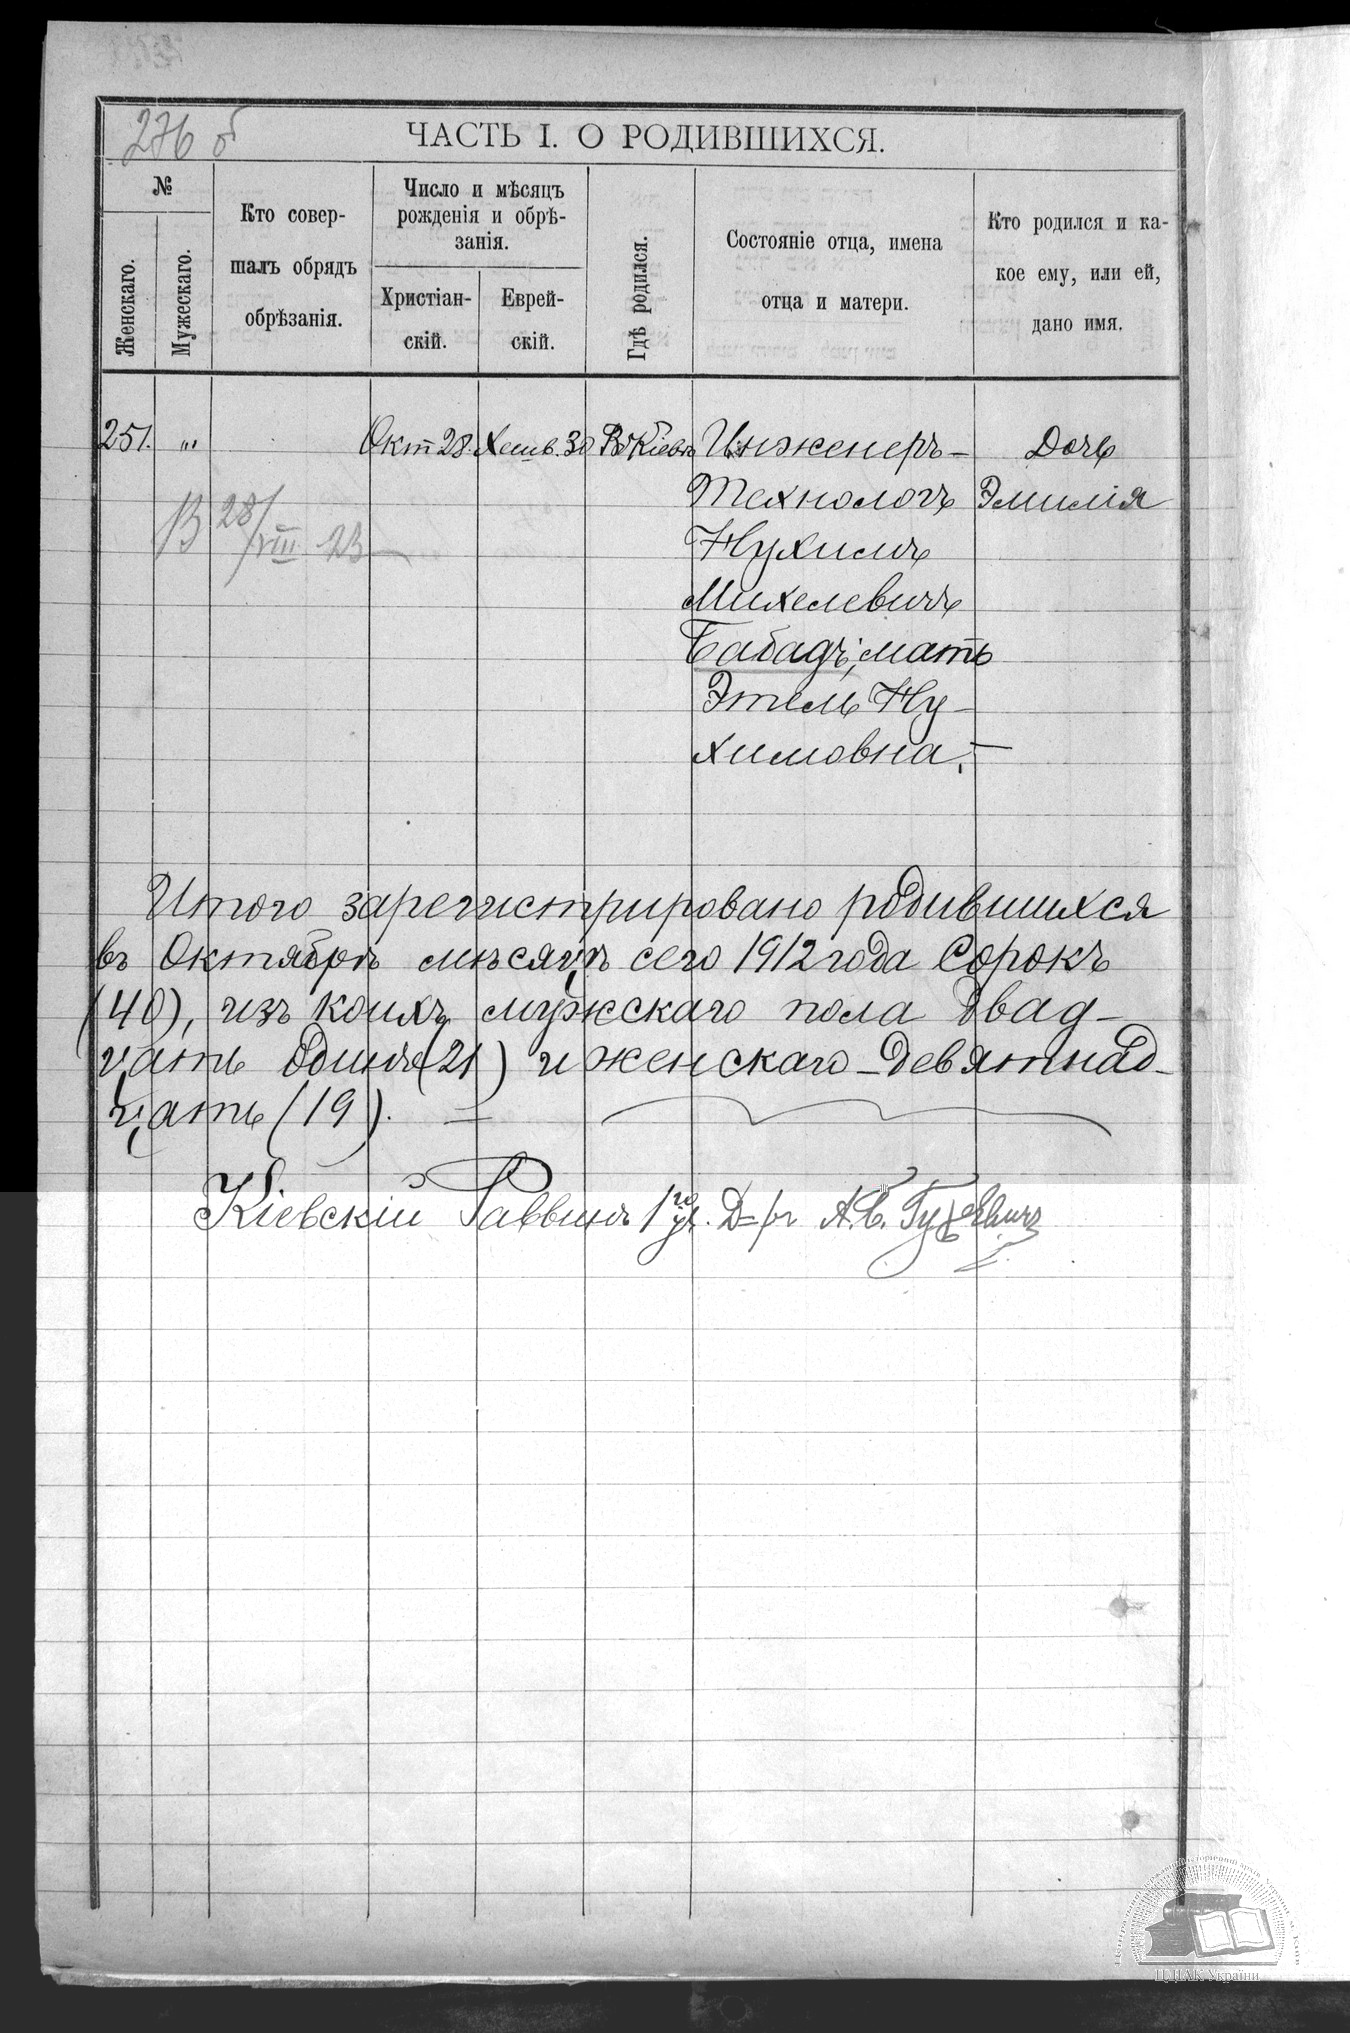 276 б
ЧАСТЬ I. О РОДИВШИХСЯ.
№
Женскаго.
Мужескаго.
Кто совер-
шалъ обрядъ
обрѣзанія.
Число и мѣсяцъ
рожденія и обрѣ-
занія.
Христіан-
скій.
Еврей-
скій.
Гдѣ родился.
Состояніе отца, имена
отца и матери.
Кто родился и ка-
кое ему, или ей,
дано имя.
251. „ Окт 28. Хешв. 30 Въ Кіевѣ Инженеръ- Дочь
Технологъ Эмилія
28/VIII 23
Нухимъ
Михелевичъ
Бабадъ; мать
Этель Ну-
химовна. —
Итого зарегистрировано родившихся
въ Октябрѣ мѣсяцѣ сего 1912 года Сорокъ
(40), изъ коихъ мужскаго пола двад-
цать одинъ (21) и женскаго - девятнад-
цать (19). =
Кіевскій Раввинъ 1го уч. Д=ръ А.Б. Гуревичъ
ЦДІАК України